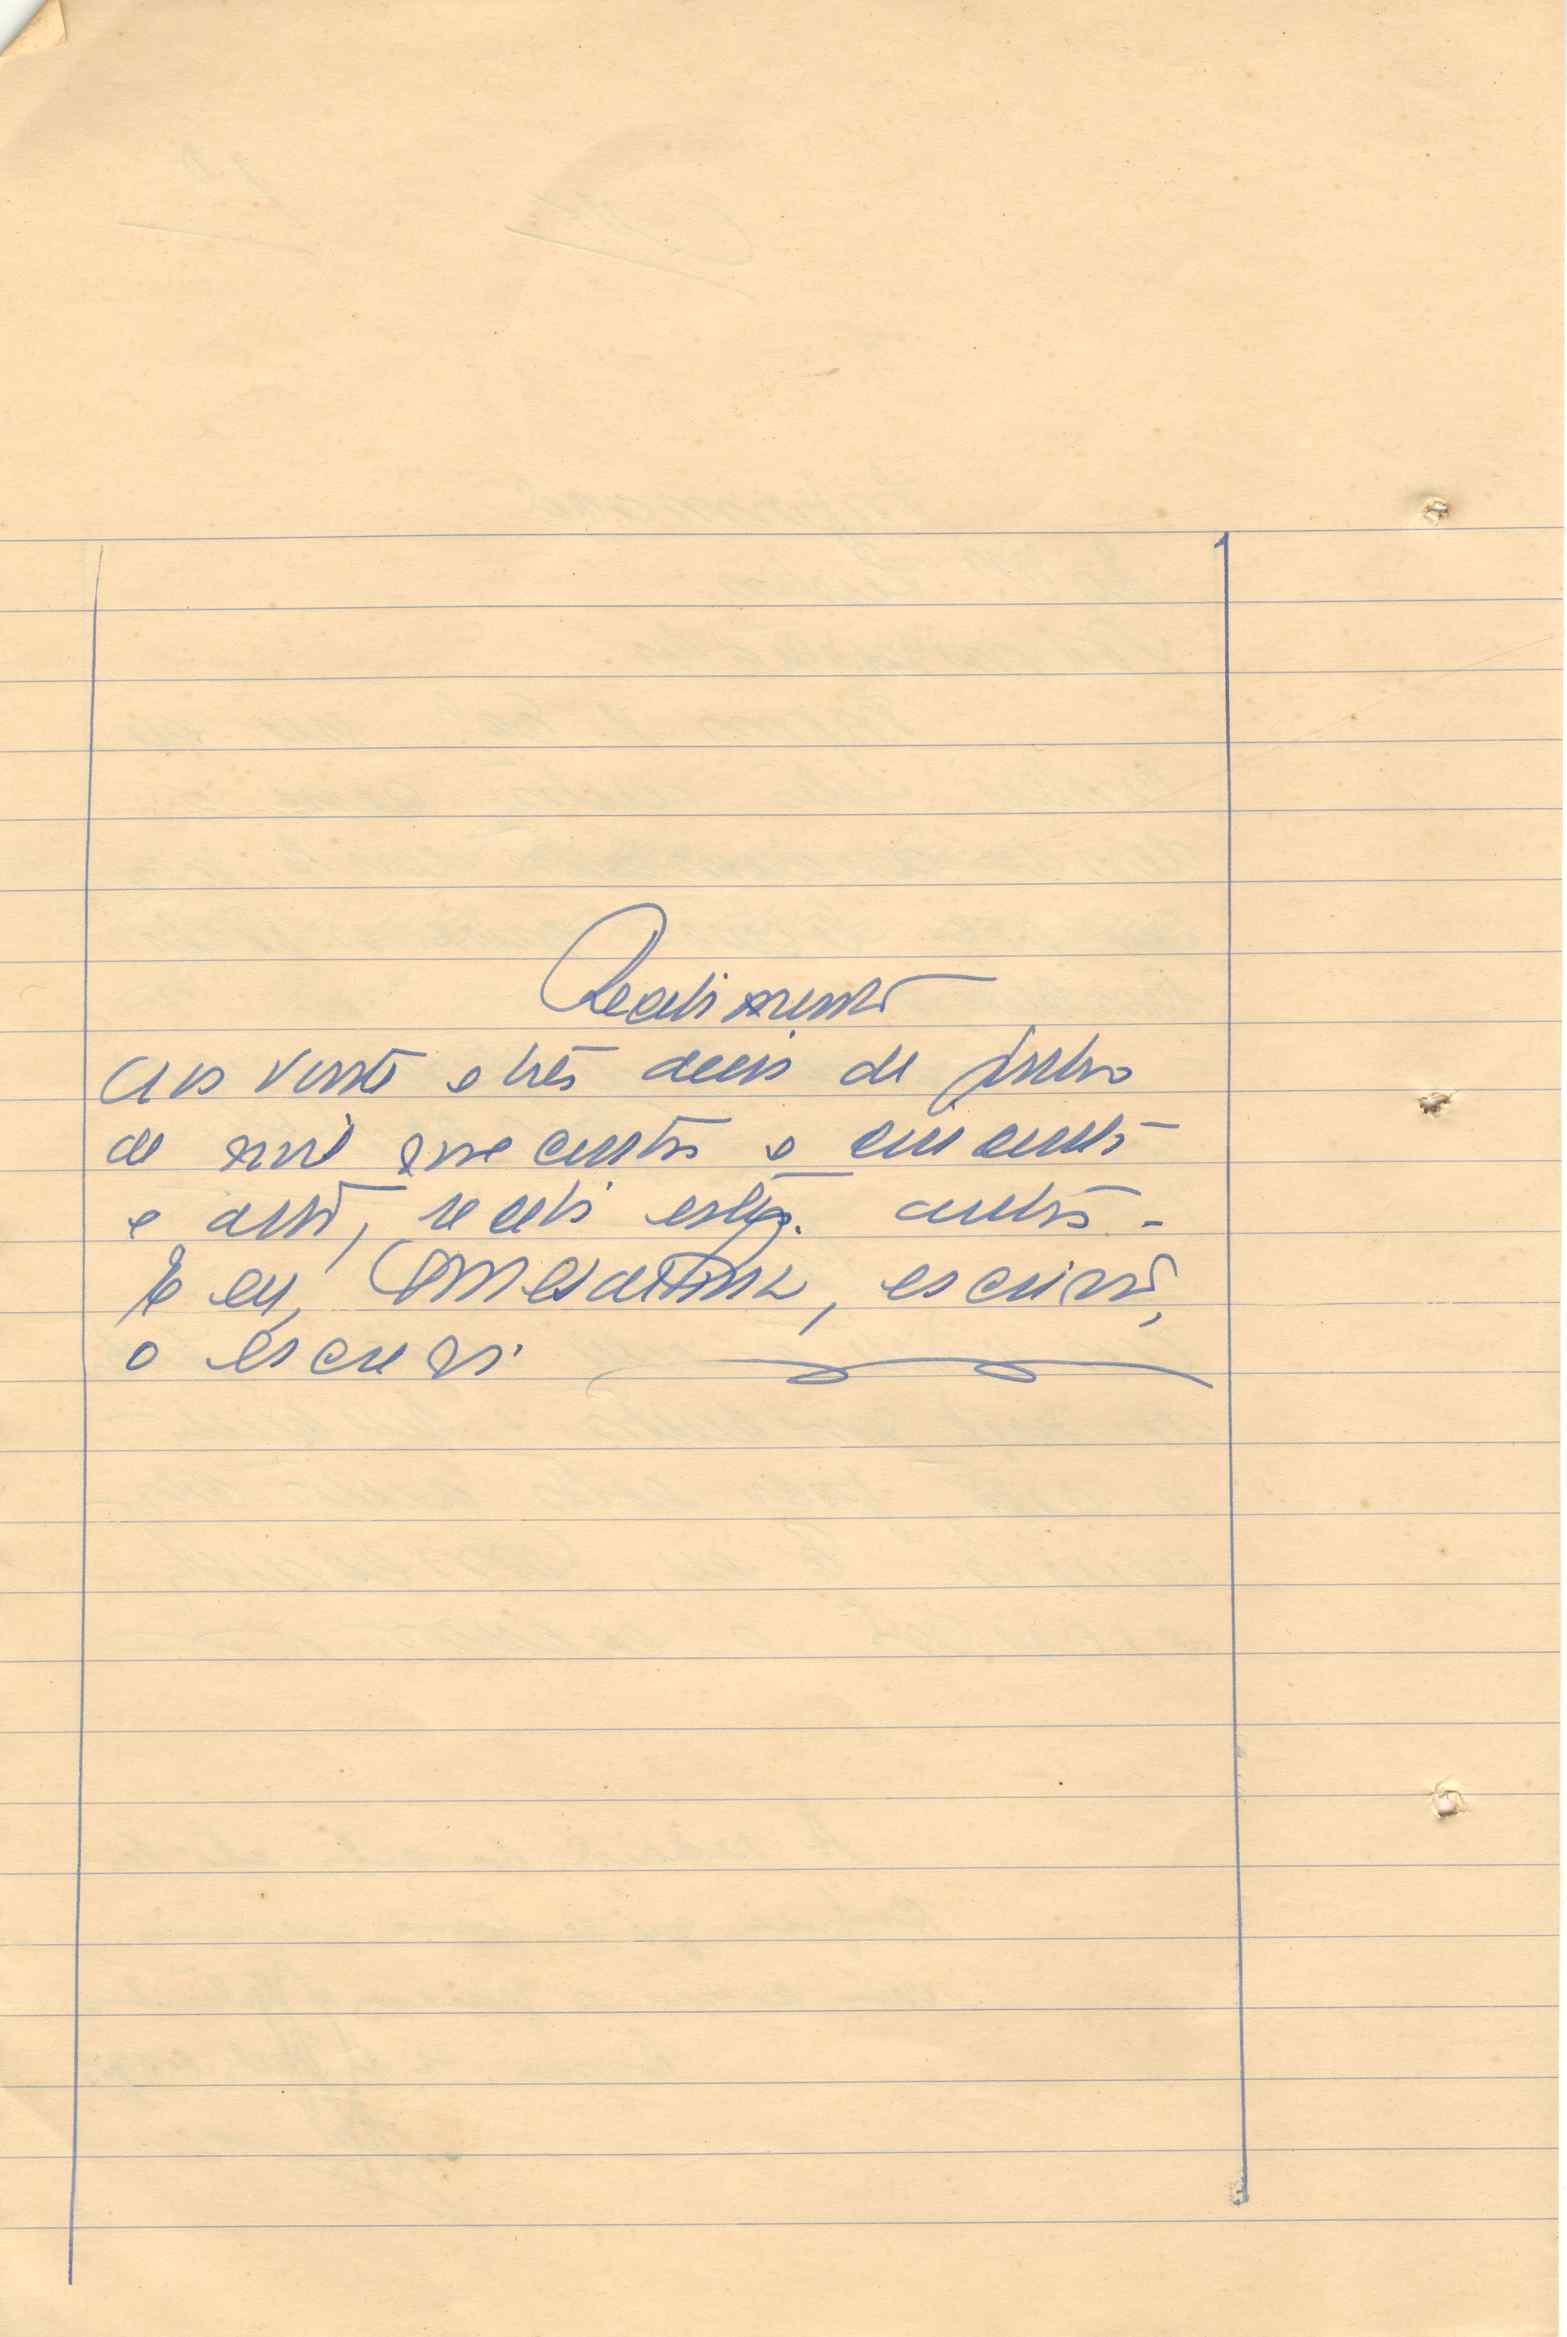 Recebimento
Aos vinte e três dias de julho
de mil novecentos e cincoenta
e oito, recebi estes autos -
E eu, escrivão,
o escrevi.